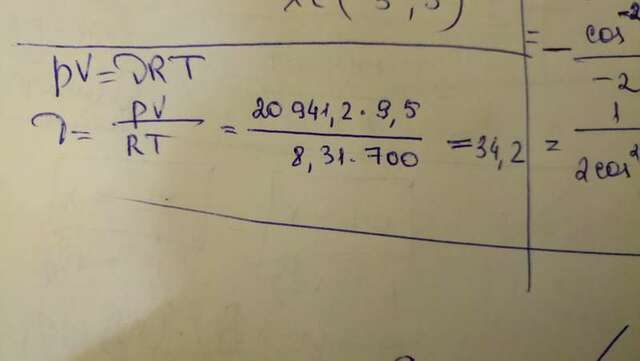 pV=νRT
ν = pV/RT = 20 941,2 · 9,5 / 8,31 · 700 = 34,2
= - cos⁻² / -2
= 1 / 2cos²